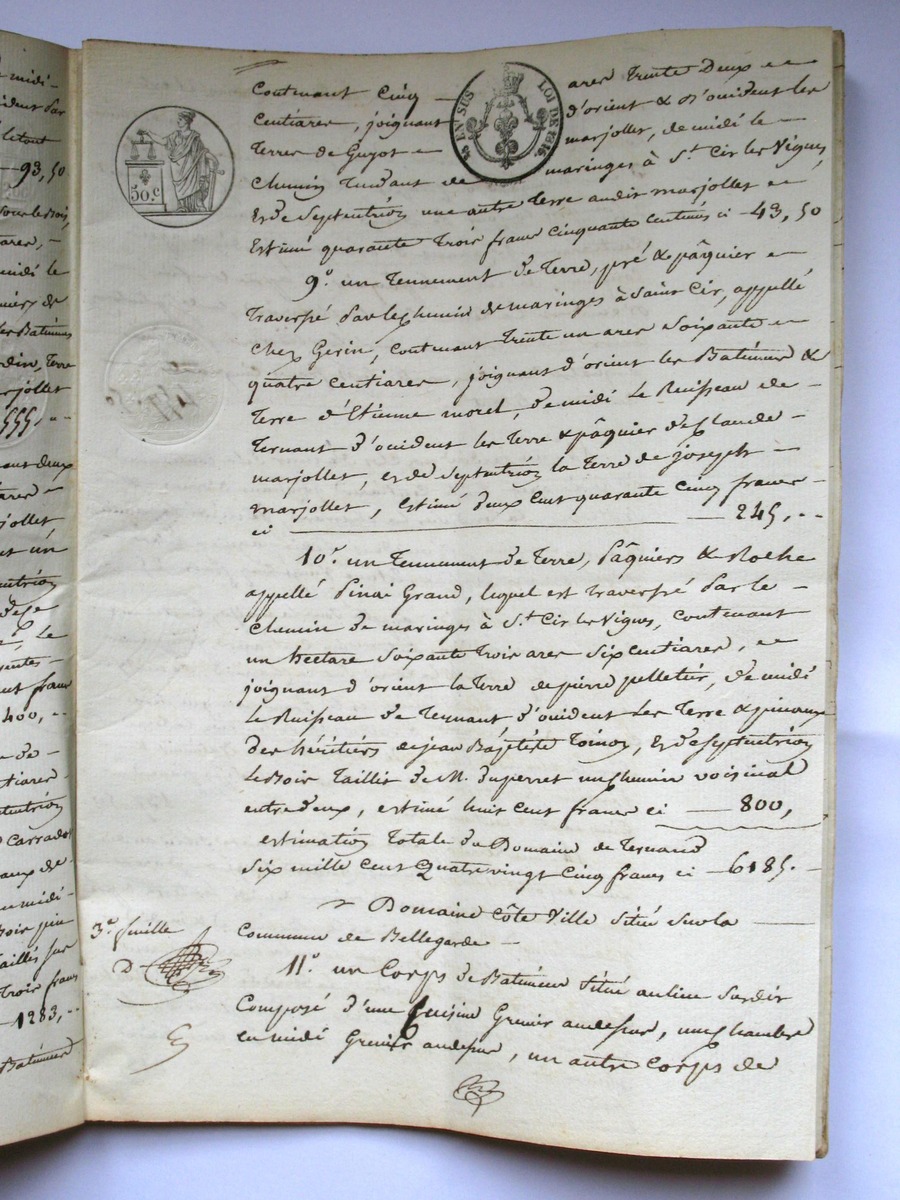 midi -
ident par
letout
- 93, 50
tares, -
midi le
de
les Batimens
Terre
marjollet
555, "
deux
centiares -
marjollet
et un
septentrion
Le
cent francs
400, -
de -
centiares -
septentrion
carrado
de
midi -
bois pin
taillis sur
Trois francs
1283, -
Batimens
50.c
⅕ EN SUS
LOI DE 1816.
contenant cinq - ares Trente Deux -
centiares, joignant d'orient & d'occident les
Terres de Guyot - marjollet, de midi le -
chemin Tendant de maringes à St. Cir les Vignes
Et de Septentrion une autre Terre audit marjollet -
Estimé quarante Trois francs cinquante centimes ci - 43, 50
9.o un Tennement de Terre, pré & pâquier -
Traversé par le chemin de maringes à Saint Cir, appellé
chez Gerin, contenant Trente un ares Soixante -
quatre centiares, joignant d'orient les Batimens &
Terre d'Etienne morel, de midi Le Ruisseau de -
Ternant d'occident les Terre & pâquier de Claude -
marjollet, et de Septentrion la Terre de joseph -
marjollet, estimé deux cent quarante cinq francs -
ci - 245, "
10.o un Tennement de Terre, Pâquiers & Roche
appellé Pinai Grand, lequel est Traversé par le -
chemin de maringes à St. Cir les Vignes, contenant
un hectare Soixante Trois ares Six centiares, -
joignant d'orient la Terre de pierre pelletier, de midi
Le Ruisseau de Ternant d'occident Les Terre &
Des héritiers de jean Baptiste Toinon, Et de Septentrion
Le Bois Taillis de M. Duperret un chemin voisinal
entre deux, estimé huit cent francs ci - 800,
estimation Totale du Domaine de Ternand
Six mille cent Quatre vingt Cinq francs ci - 6185. -
Domaine Côte Ville Situé Sur la
Commune de Bellegarde -
3e. feuille
11.o un Corps de Batimens Situé au lieu Susdit
Composé d'une Cuisine Grenier au dessus, une chambre
en midi Grenier au dessus, un autre Corps de